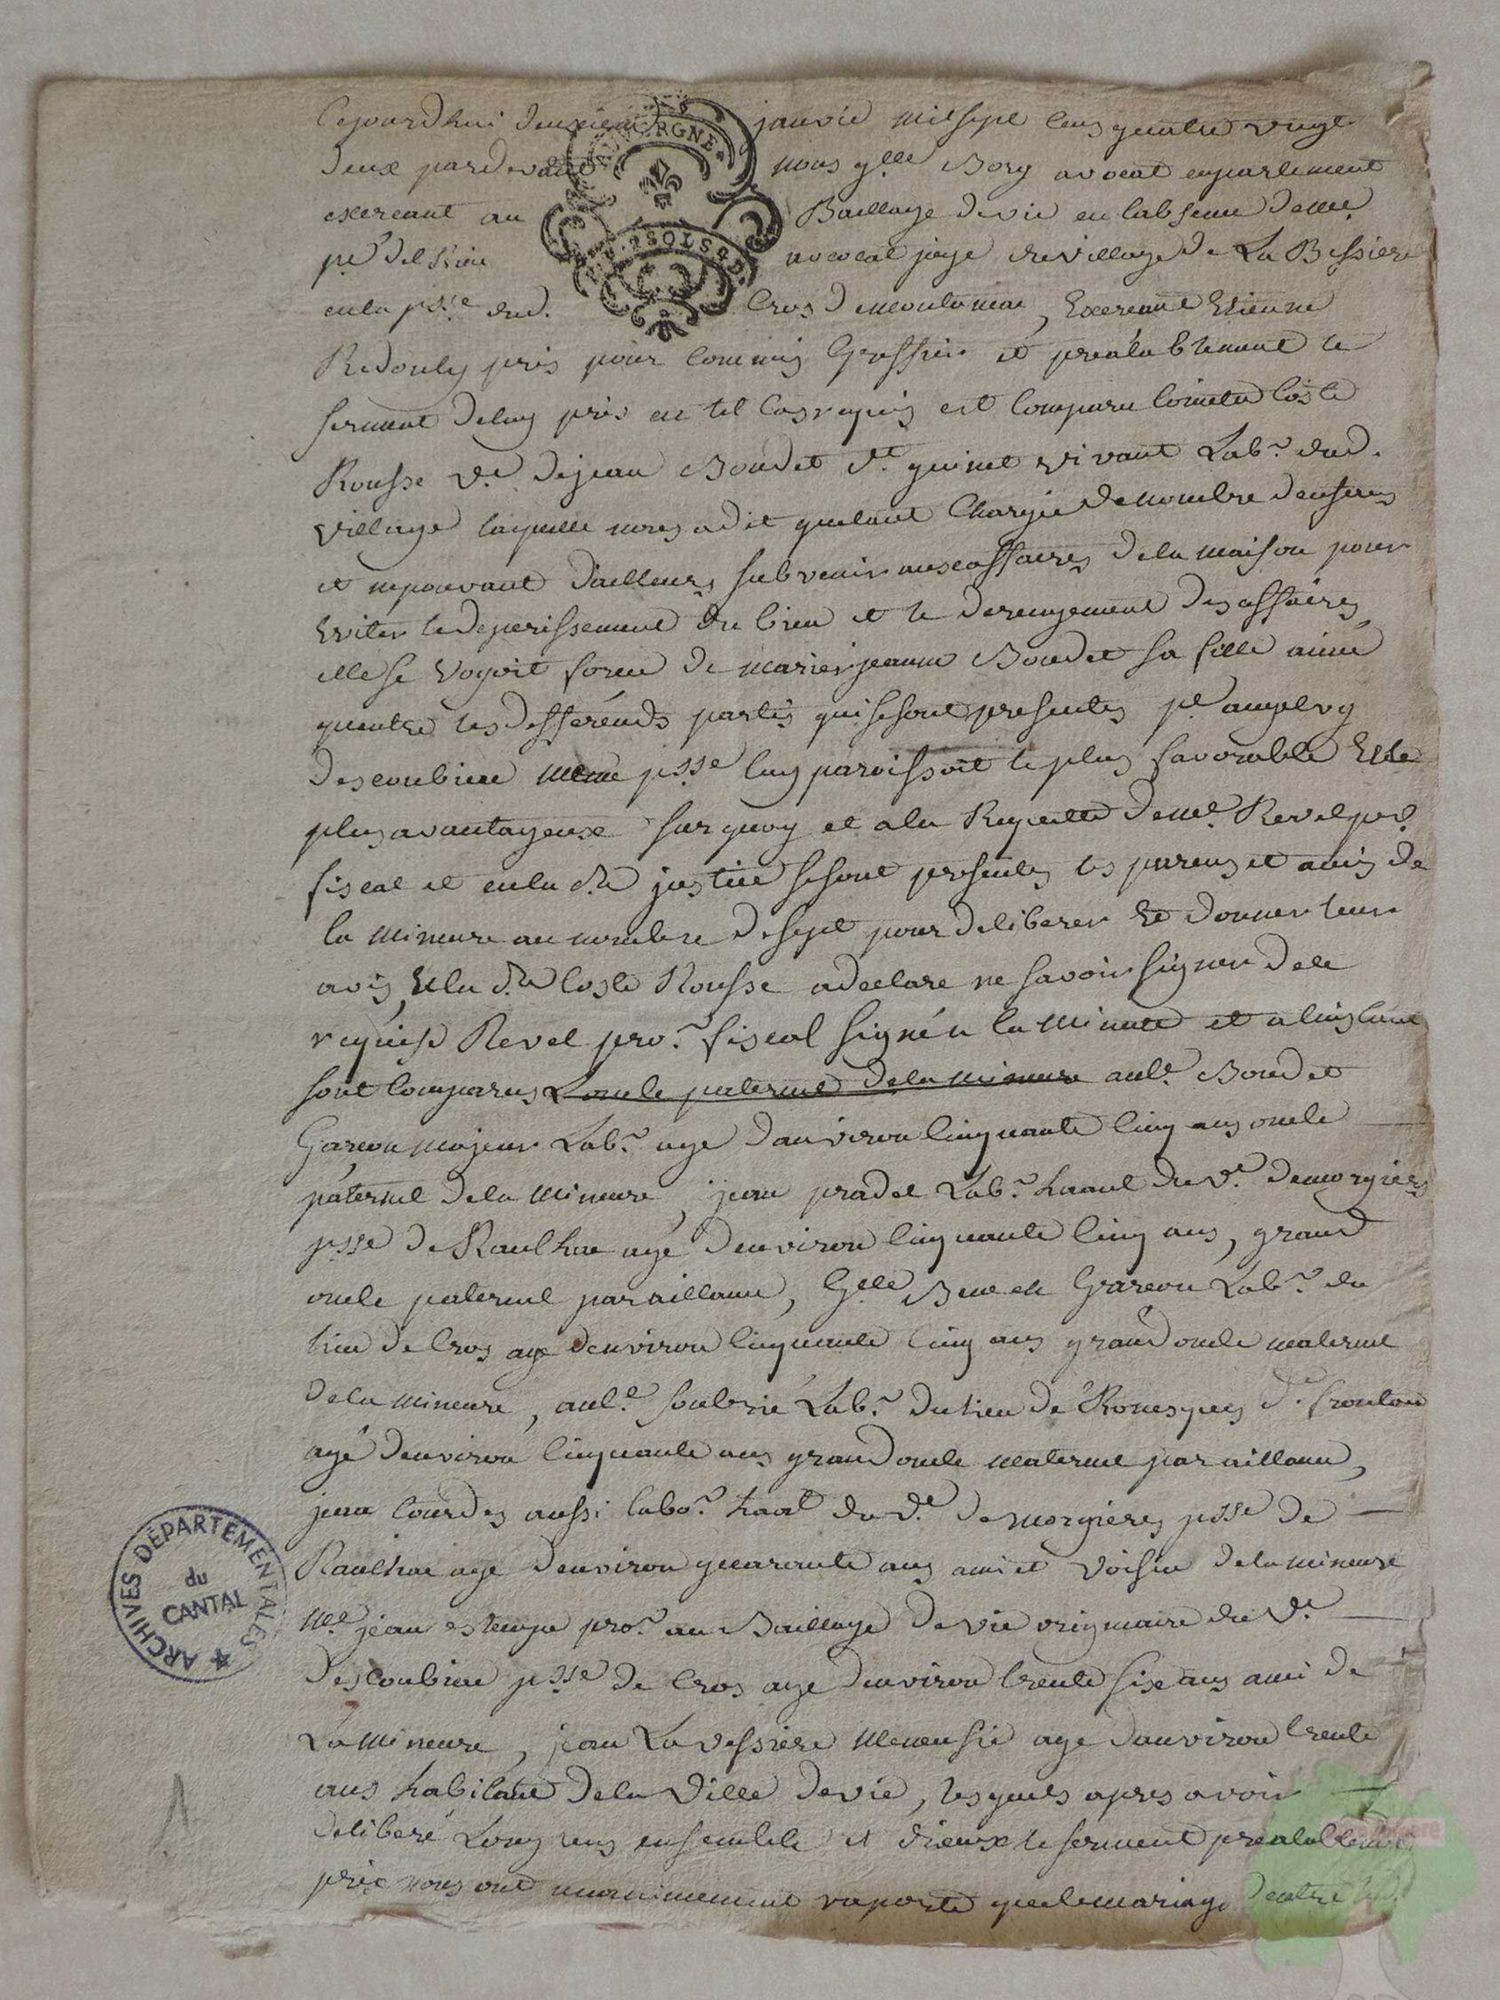 Cejourdhui deuxieme janvie milsept cens quatre vingt
deux pardevant nous glle Bory avocat en parlement
exercant au Baillage de vic en labsence de me
avocat juge du village de La Bessiere
en la psse dud. Cros de montamat, Excercant Etienne
Redouly pris pour commis Greffier et prealablement le
serment deluy pris en tel cas requis est comparu Coste
Rousse ve. dejean Boudet dt. quinet vivant Labr. dud.
village laquelle nous adit quetant Chargée denombre denfens
et nepouvant dailleurs subvenir aux affaires dela maison pour
Eviter le deperissement du bien et le derengement des affaires
elle se voyoit forcée de marier jeanne Boudet sa fille ainée
quentre les differends partis qui se sont presentes pe
descoubiac meme psse luy paroissoit le plus favorable Et le
plus avantageux sur quoy et ala Requette de me. Revel pr.
fiscal et en la dte justice se sont presentes les parens et amis de
la mineure au nombre de sept pour deliberer Et donner leur
avis, Et la dte Coste Rousse a declare ne savoir signer dele
requise Revel pror. fiscal signé a la minute et a linstant
sont comparus Loncle paternel dela mineure antt. Boudet
Garcon majeur Labr. age danviron cinquante cinq ans oncle
paternel dela mineure, jean pradel Labr. haant du ve. demorgieres
psse de Raulhac agé denviron cinquante cinq ans, grand
oncle paternel par aillance, Glle Garcon Labr. du
lieu de Cros age denviron cinquante cinq ans grand oncle maternel
de la mineure, antt. soubrié Labr. du lieu de
agé denviron cinquante ans grand oncle maternel par aillance,
jean Courdes aussi labor. haant du ve. de morgieres psse de
Raulhac age denviron quarante ans ami et voisin dela mineure
Me jean estampe pror. au Baillage de vic originaire du ve.
descoubiac psse de Cros age denviron trente six ans ami de
La mineure, jean La vessiere menusié age danviron trente
ans habitant dela ville de vic, lesquels apres avoir
deliberé Long tems ensemble et dieux le serment prealablement
pris nous ont unanimement raporte que le mariage dentre lad.
AUVERGNE
ARCHIVES DÉPARTEMENTALES
du
CANTAL
1